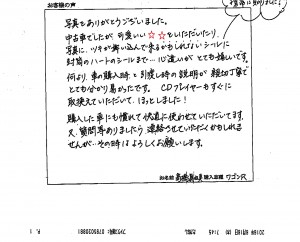 お客様の声
写真をありがとうございました。
中古車でしたが 可愛いい☆☆といただいたり、
写真に、ツキが舞い込んで来るかもしれないシールに
封筒のハートのシールまで… 心遣いがとても嬉しいです。
何より、車の購入時と引渡し時の説明が 親切丁寧で
とても分かり易かったです。 CDプレイヤーもすぐに
取換えていただいて、ほっとしました!
購入した車にも慣れて快適に使わせていただいてます。
又、質問等ありましたら 連絡させていただくかもしれま
せんが…その時はよろしくお願いします。
お名前
購入車種 ワゴンR